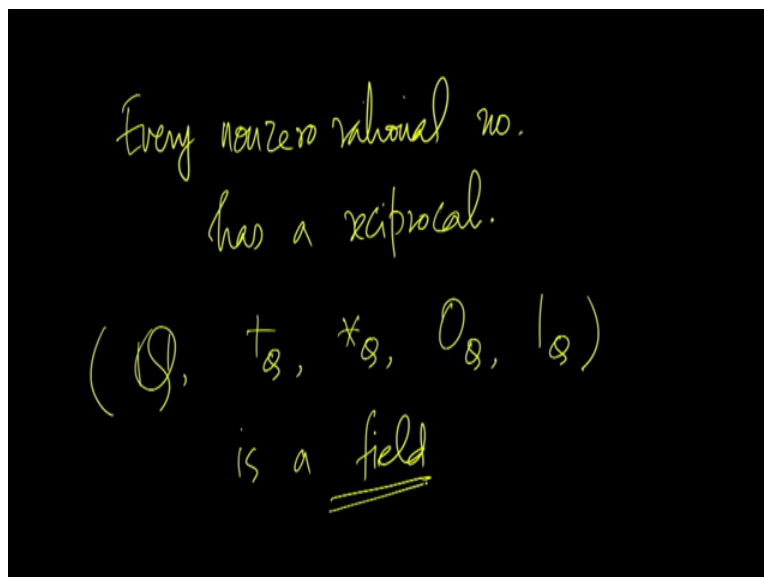 Every nonzero rational no.
has a reciprocal.
(ℚ, +ℚ, *ℚ, 0ℚ, 1ℚ)
is a field